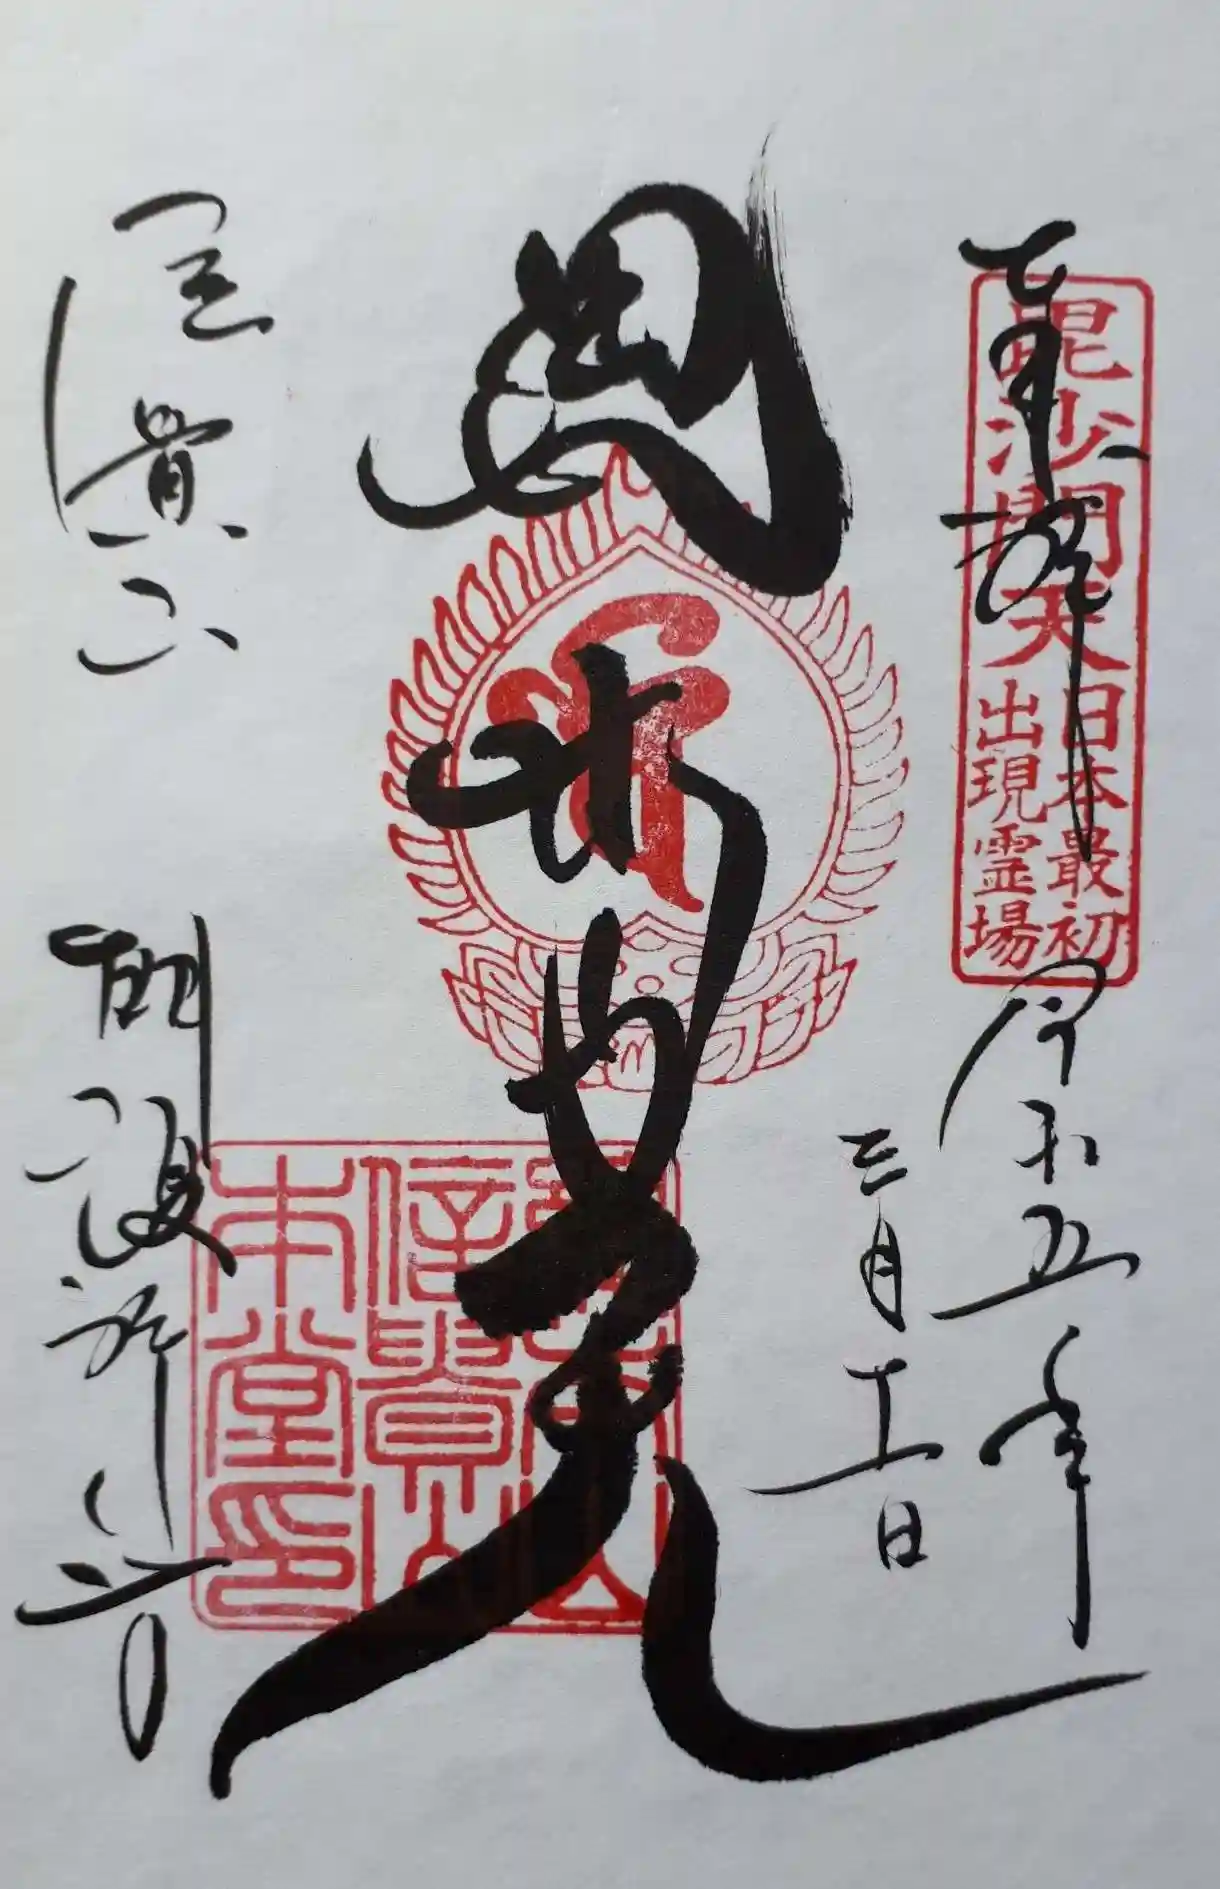 奉拝
毘沙門天
日本最初
出現霊場
令和五年
三月十一日
毘沙門天
信貴山
本堂印
信貴山
朝護孫子寺